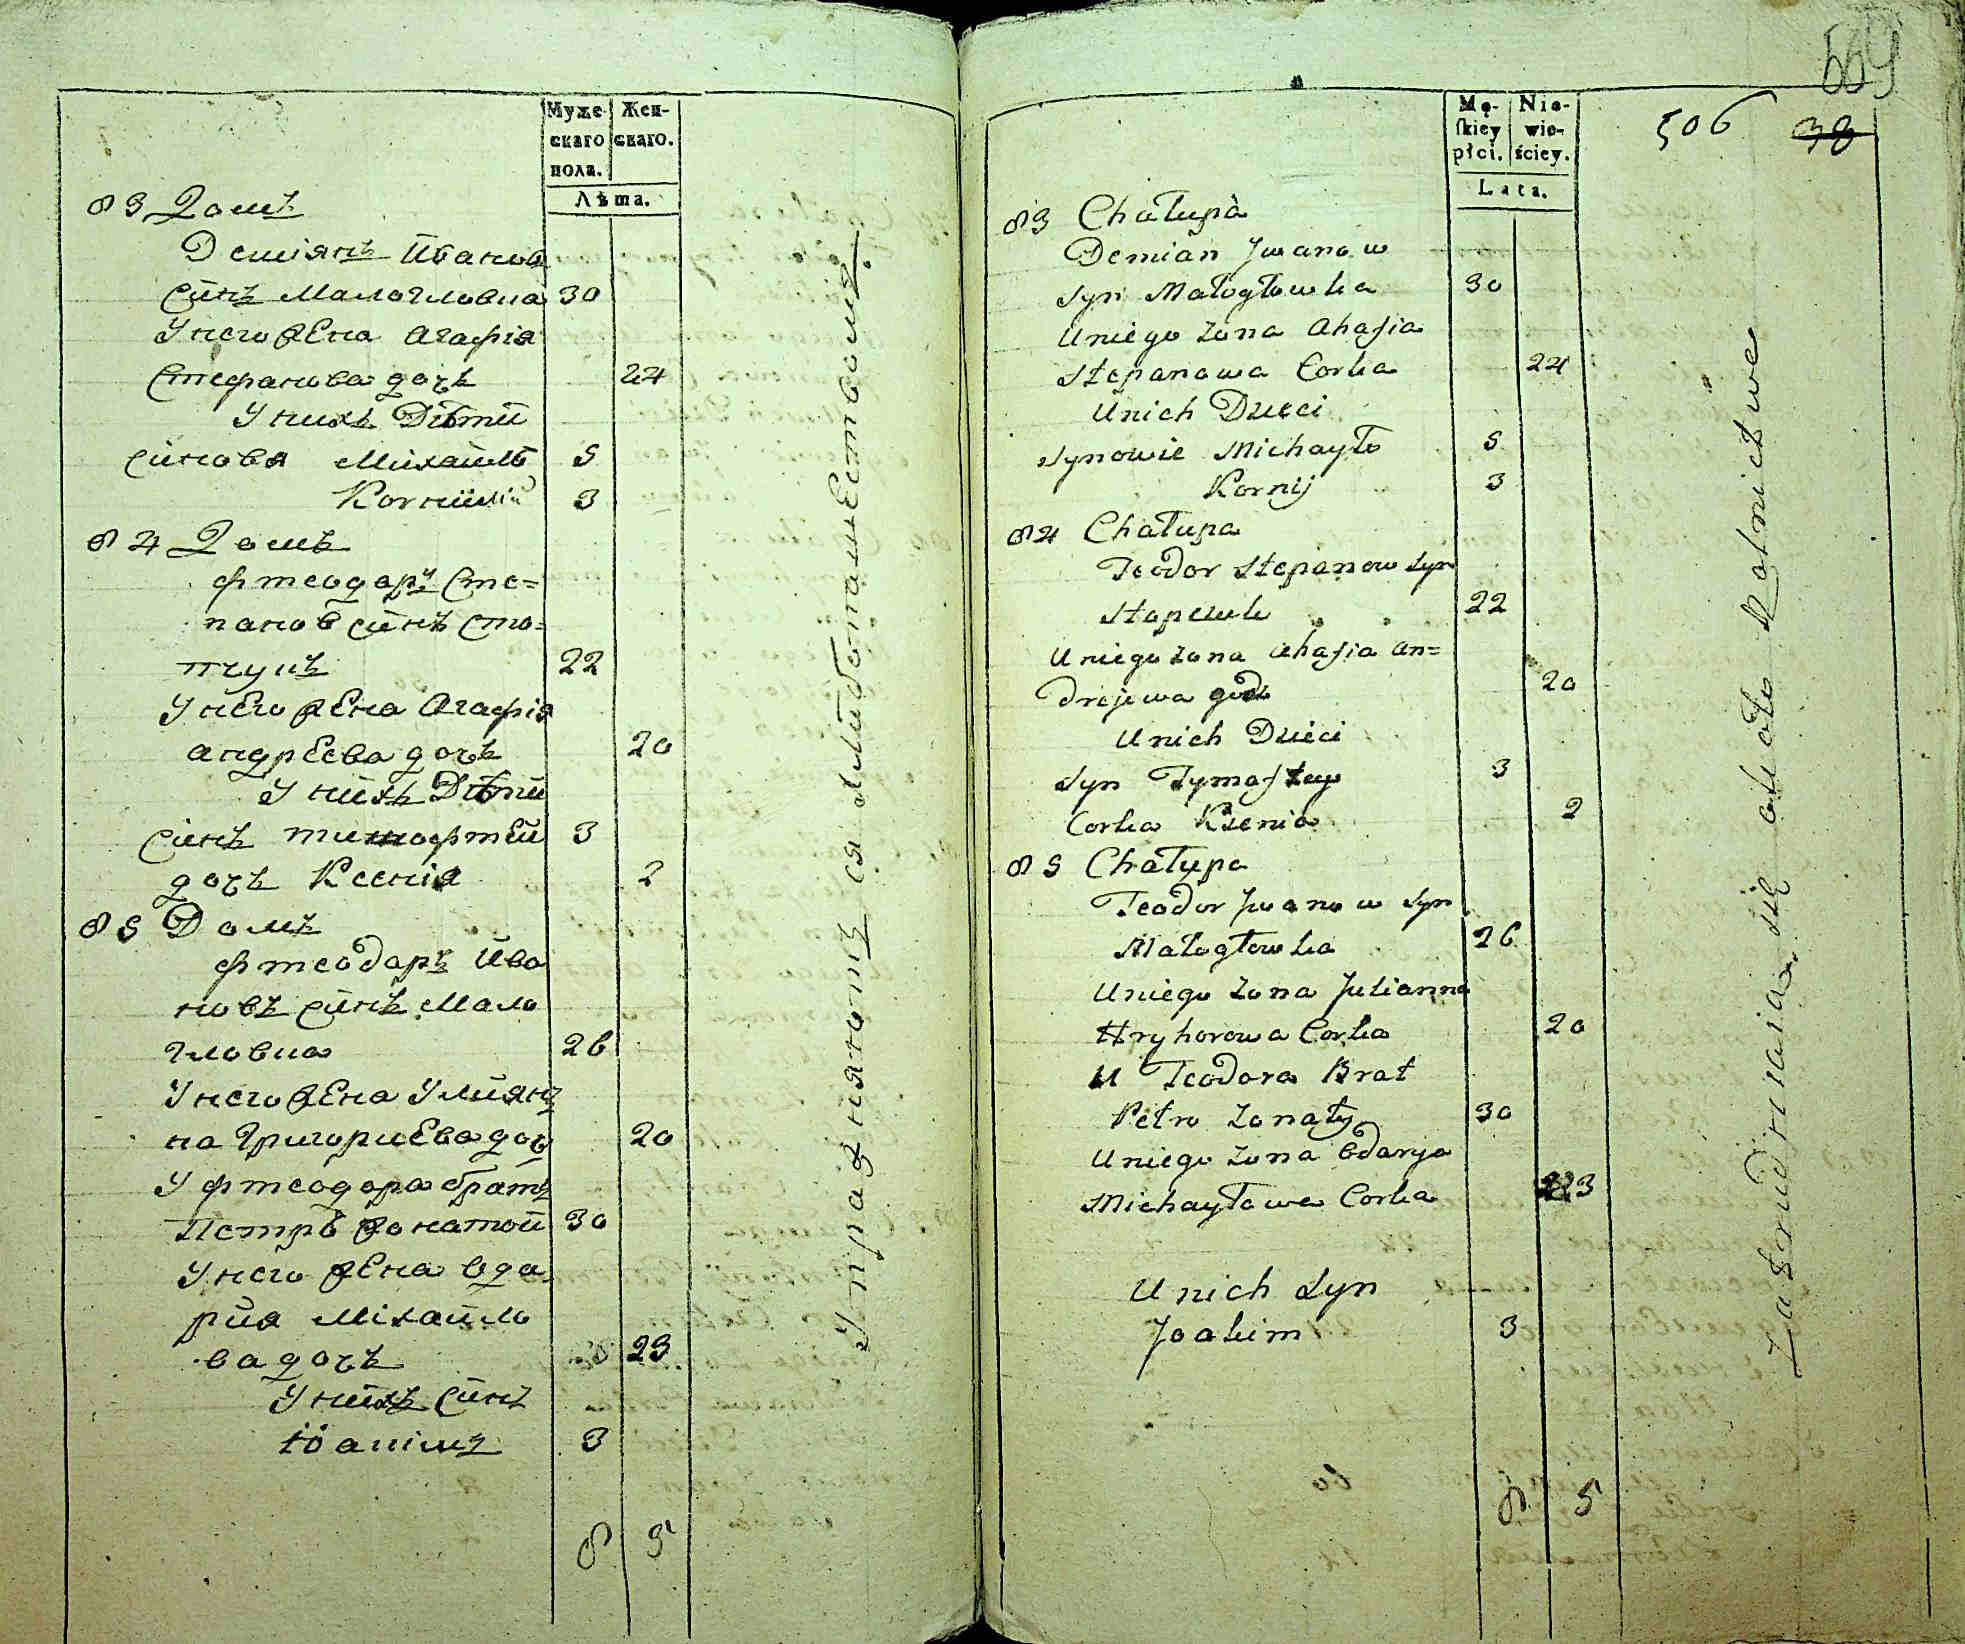 Муже- Жен-
скаго скаго.
пола.
Лѣта.
83 Домъ
Деміянъ Иванов
синъ Малоголовка 30
У него жена Агафія
Стефанова дочь 24
У нихъ Дѣти
синовя Михайло 5
Корнилій 3
84 Домъ
Фтеодоръ Сте=
панов синъ Сто=
пчукъ 22
У него жена Агафія
андреева дочь 20
У нихъ Дѣти
синъ тимофтей 3
дочь Ксенія 2
85 Домъ
Фтеодоръ Ива
новъ синъ Мало
гловка 26
У него жена Улиян
на Григориева доч 20
У фтеодора братъ
Петръ жонатой 30
У него жена Вда
рия Михайло
ва дочь 23
У нихъ синъ
Іоакимъ 3
8 5
Упражняютъ ся хлибопашеством.
569
506 38
Mę- Nie-
skiey wie-
płci. ściey.
Lata.
83 Chałupa
Demian Jwanow
syn Małogłowka 30
Uniego żona Ahafia
Stepanowa Corka 24
Unich Dzieci
Synowie Michayło 5
Kornij 3
84 Chałupa
Teodor Stepanow Syn
Stopczuk 22
Uniego żona ahafia an=
drejewa 20
Unich Dzieci
Syn Tymoftey 3
Corka Ksenia 2
85 Chałupa
Teodor Jwanow Syn
Małogłowka 26
Uniego żona Julianna
Hryhorowa Corka 20
U Teodora Brat
Petro żonaty 30
Uniego żona Odarya
Michayłowa Corka 23
Unich Syn
Joakim 3
8 5
Zatrudniaia się około Rolnictwa